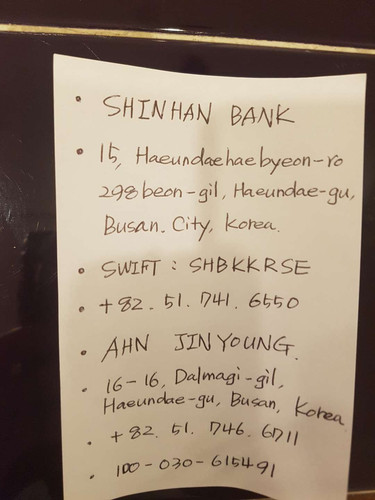 • SHINHAN BANK
• 15, Haeundaehaebyeon-ro
298beon-gil, Haeundae-gu,
Busan. City, Korea.
• SWIFT : SHBKKRSE
• +82. 51. 741. 6550
• AHN JINYOUNG.
• 16-16, Dalmagi-gil,
Haeundae-gu, Busan, Korea
• +82. 51. 746. 6711
• 100-030-615491